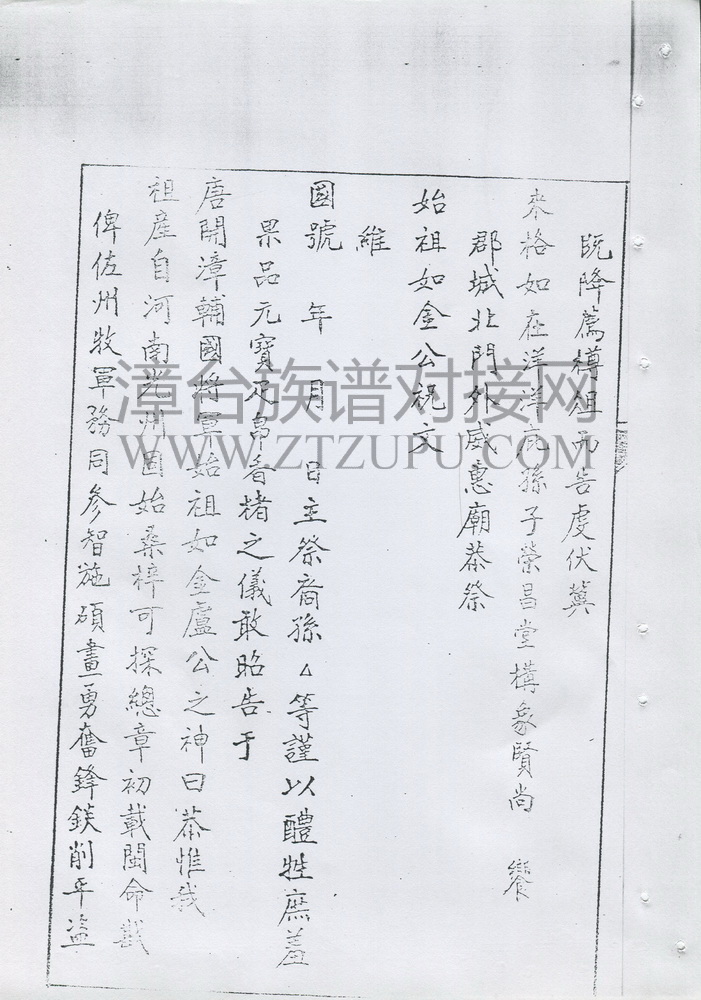 既降薦樽俎而告虔伏冀
來格如在洋洋庇孫子榮昌堂構象賢尚 饗
郡城北門外威惠廟恭祭
始祖如金公祝文
維
國號 年 月 日主祭裔孫△等謹以醴牲庶羞
果品元寶足帛香楮之儀敢昭告于
唐開漳輔國將軍始祖如金盧公之神曰恭惟我
祖產自河南光州固始桑梓可探總章初載閩命戡
俾佐州牧軍務同參智施碩畫勇奮鋒鋑削平盜
漳台族谱对接网
WWW.ZTZUPU.COM